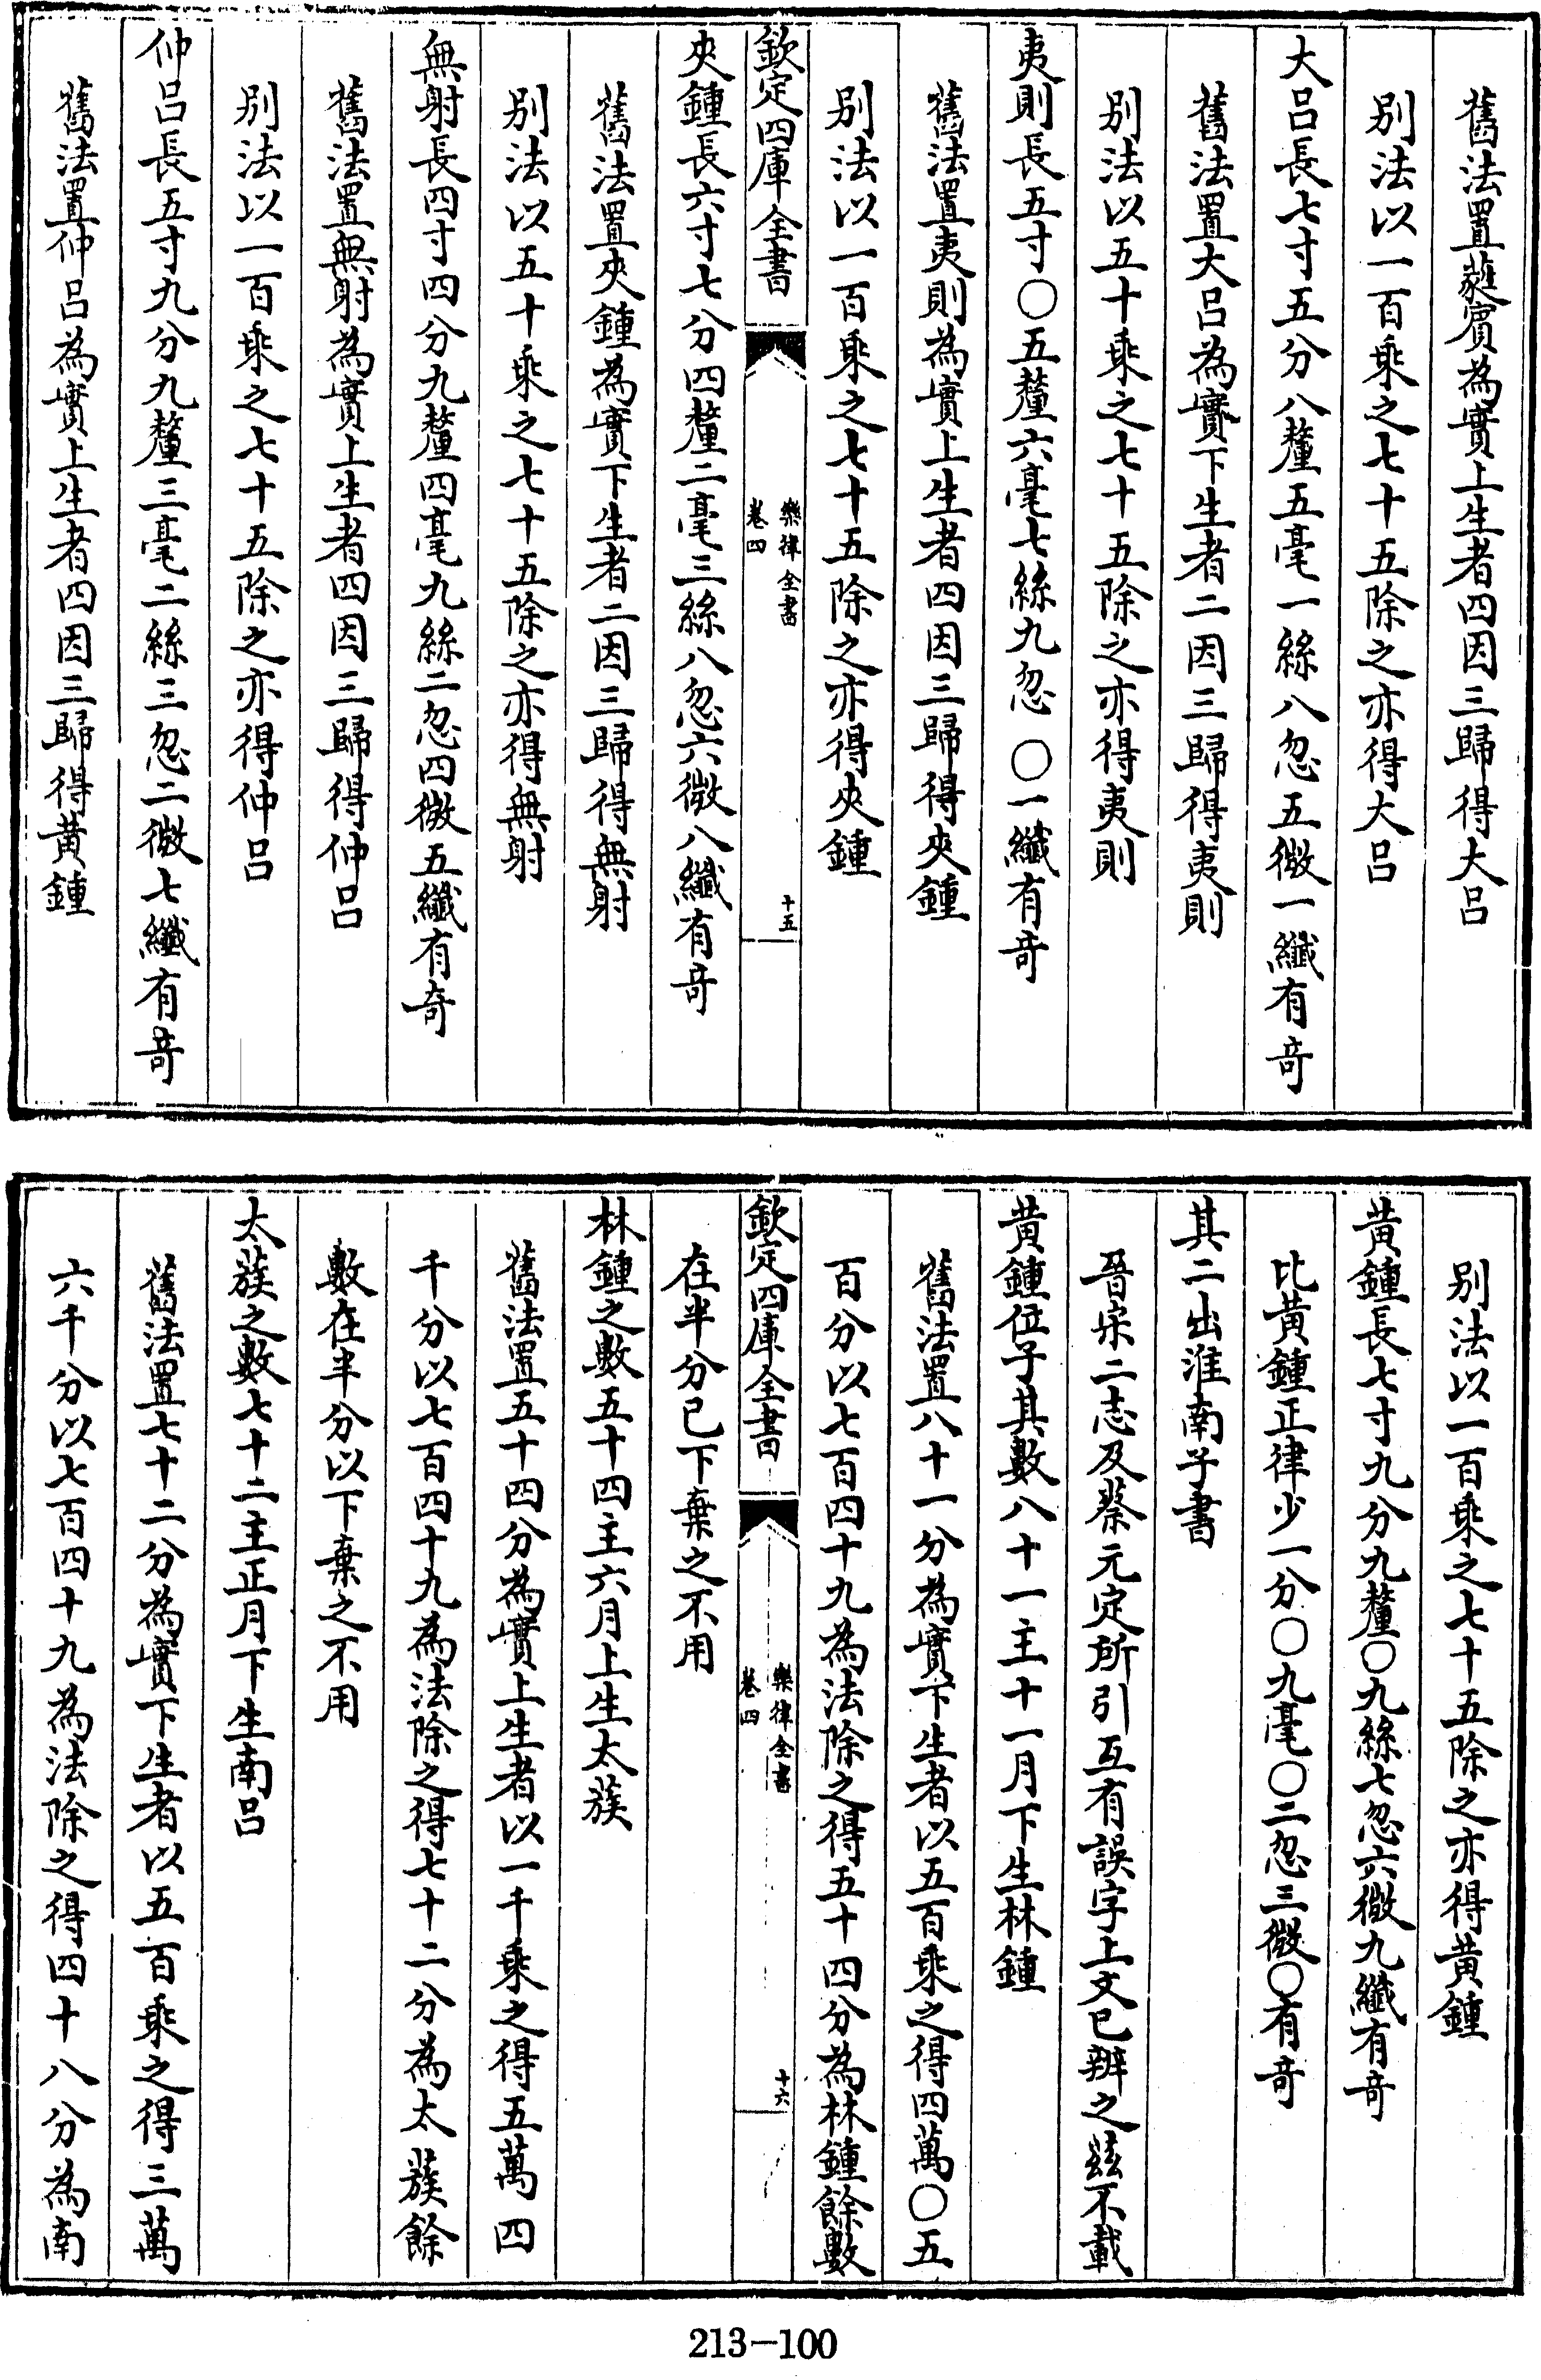 舊法置蕤賓為實上生者四因三歸得大吕
别法以一百乘之七十五除之亦得大吕
大吕長七寸五分八釐五毫一絲八忽五微一纖有奇
舊法置大吕為實下生者二因三歸得夷則
别法以五十乘之七十五除之亦得夷則
夷則長五寸〇五釐六毫七絲九忽〇一纖有奇
舊法置夷則為實上生者四因三歸得夾鍾
别法以一百乘之七十五除之亦得夾鍾
欽定四庫全書
樂律全書
卷四
十五
夾鍾長六寸七分四釐二毫三絲八忽六微八纖有奇
舊法置夾鍾為實下生者二因三歸得無射
别法以五十乘之七十五除之亦得無射
無射長四寸四分九釐四毫九絲二忽四微五纖有奇
舊法置無射為實上生者四因三歸得仲吕
别法以一百乘之七十五除之亦得仲吕
仲吕長五寸九分九釐三毫二絲三忽二微七纖有奇
舊法置仲吕為實上生者四因三歸得黄鍾
别法以一百乘之七十五除之亦得黄鍾
黄鍾長七寸九分九釐〇九絲七忽六微九纖有奇
比黄鍾正律少一分〇九毫〇二忽三微〇有奇
其二出淮南子書
晉宋二志及蔡元定所引互有誤字上文已辨之兹不載
黄鍾位子其數八十一主十一月下生林鍾
舊法置八十一分為實下生者以五百乘之得四萬〇五
百分以七百四十九為法除之得五十四分為林鍾餘數
欽定四庫全書
樂律全書
卷四
十六
在半分已下棄之不用
林鍾之數五十四主六月上生太蔟
舊法置五十四分為實上生者以一千乘之得五萬四
千分以七百四十九為法除之得七十二分為太蔟餘
數在半分以下棄之不用
太蔟之數七十二主正月下生南吕
舊法置七十二分為實下生者以五百乘之得三萬
六千分以七百四十九為法除之得四十八分為南
213-100